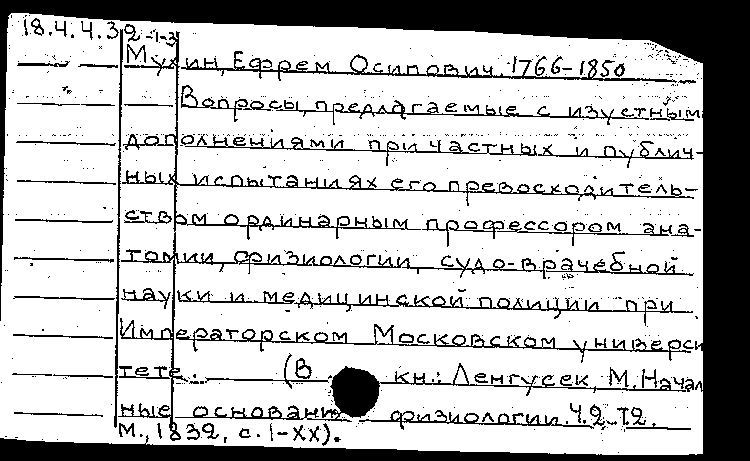 18.4.4.32-1-3
Мухин, Ефрем Осипович. 1766-1850
Вопросы, предлагаемые с изустным
дополнениями при частных и публич-
ных испытаниях его превосходитель-
ством ординарным профессором ана-
томии, физиологии, судо-врачебной
науки и медицинской полиции при
Императорском Московском универси
тете. (В кн.: Ленгусек, М. Начал
ные основани физиологии. Ч.2. Т.2.
М., 1832, с. I-XX).